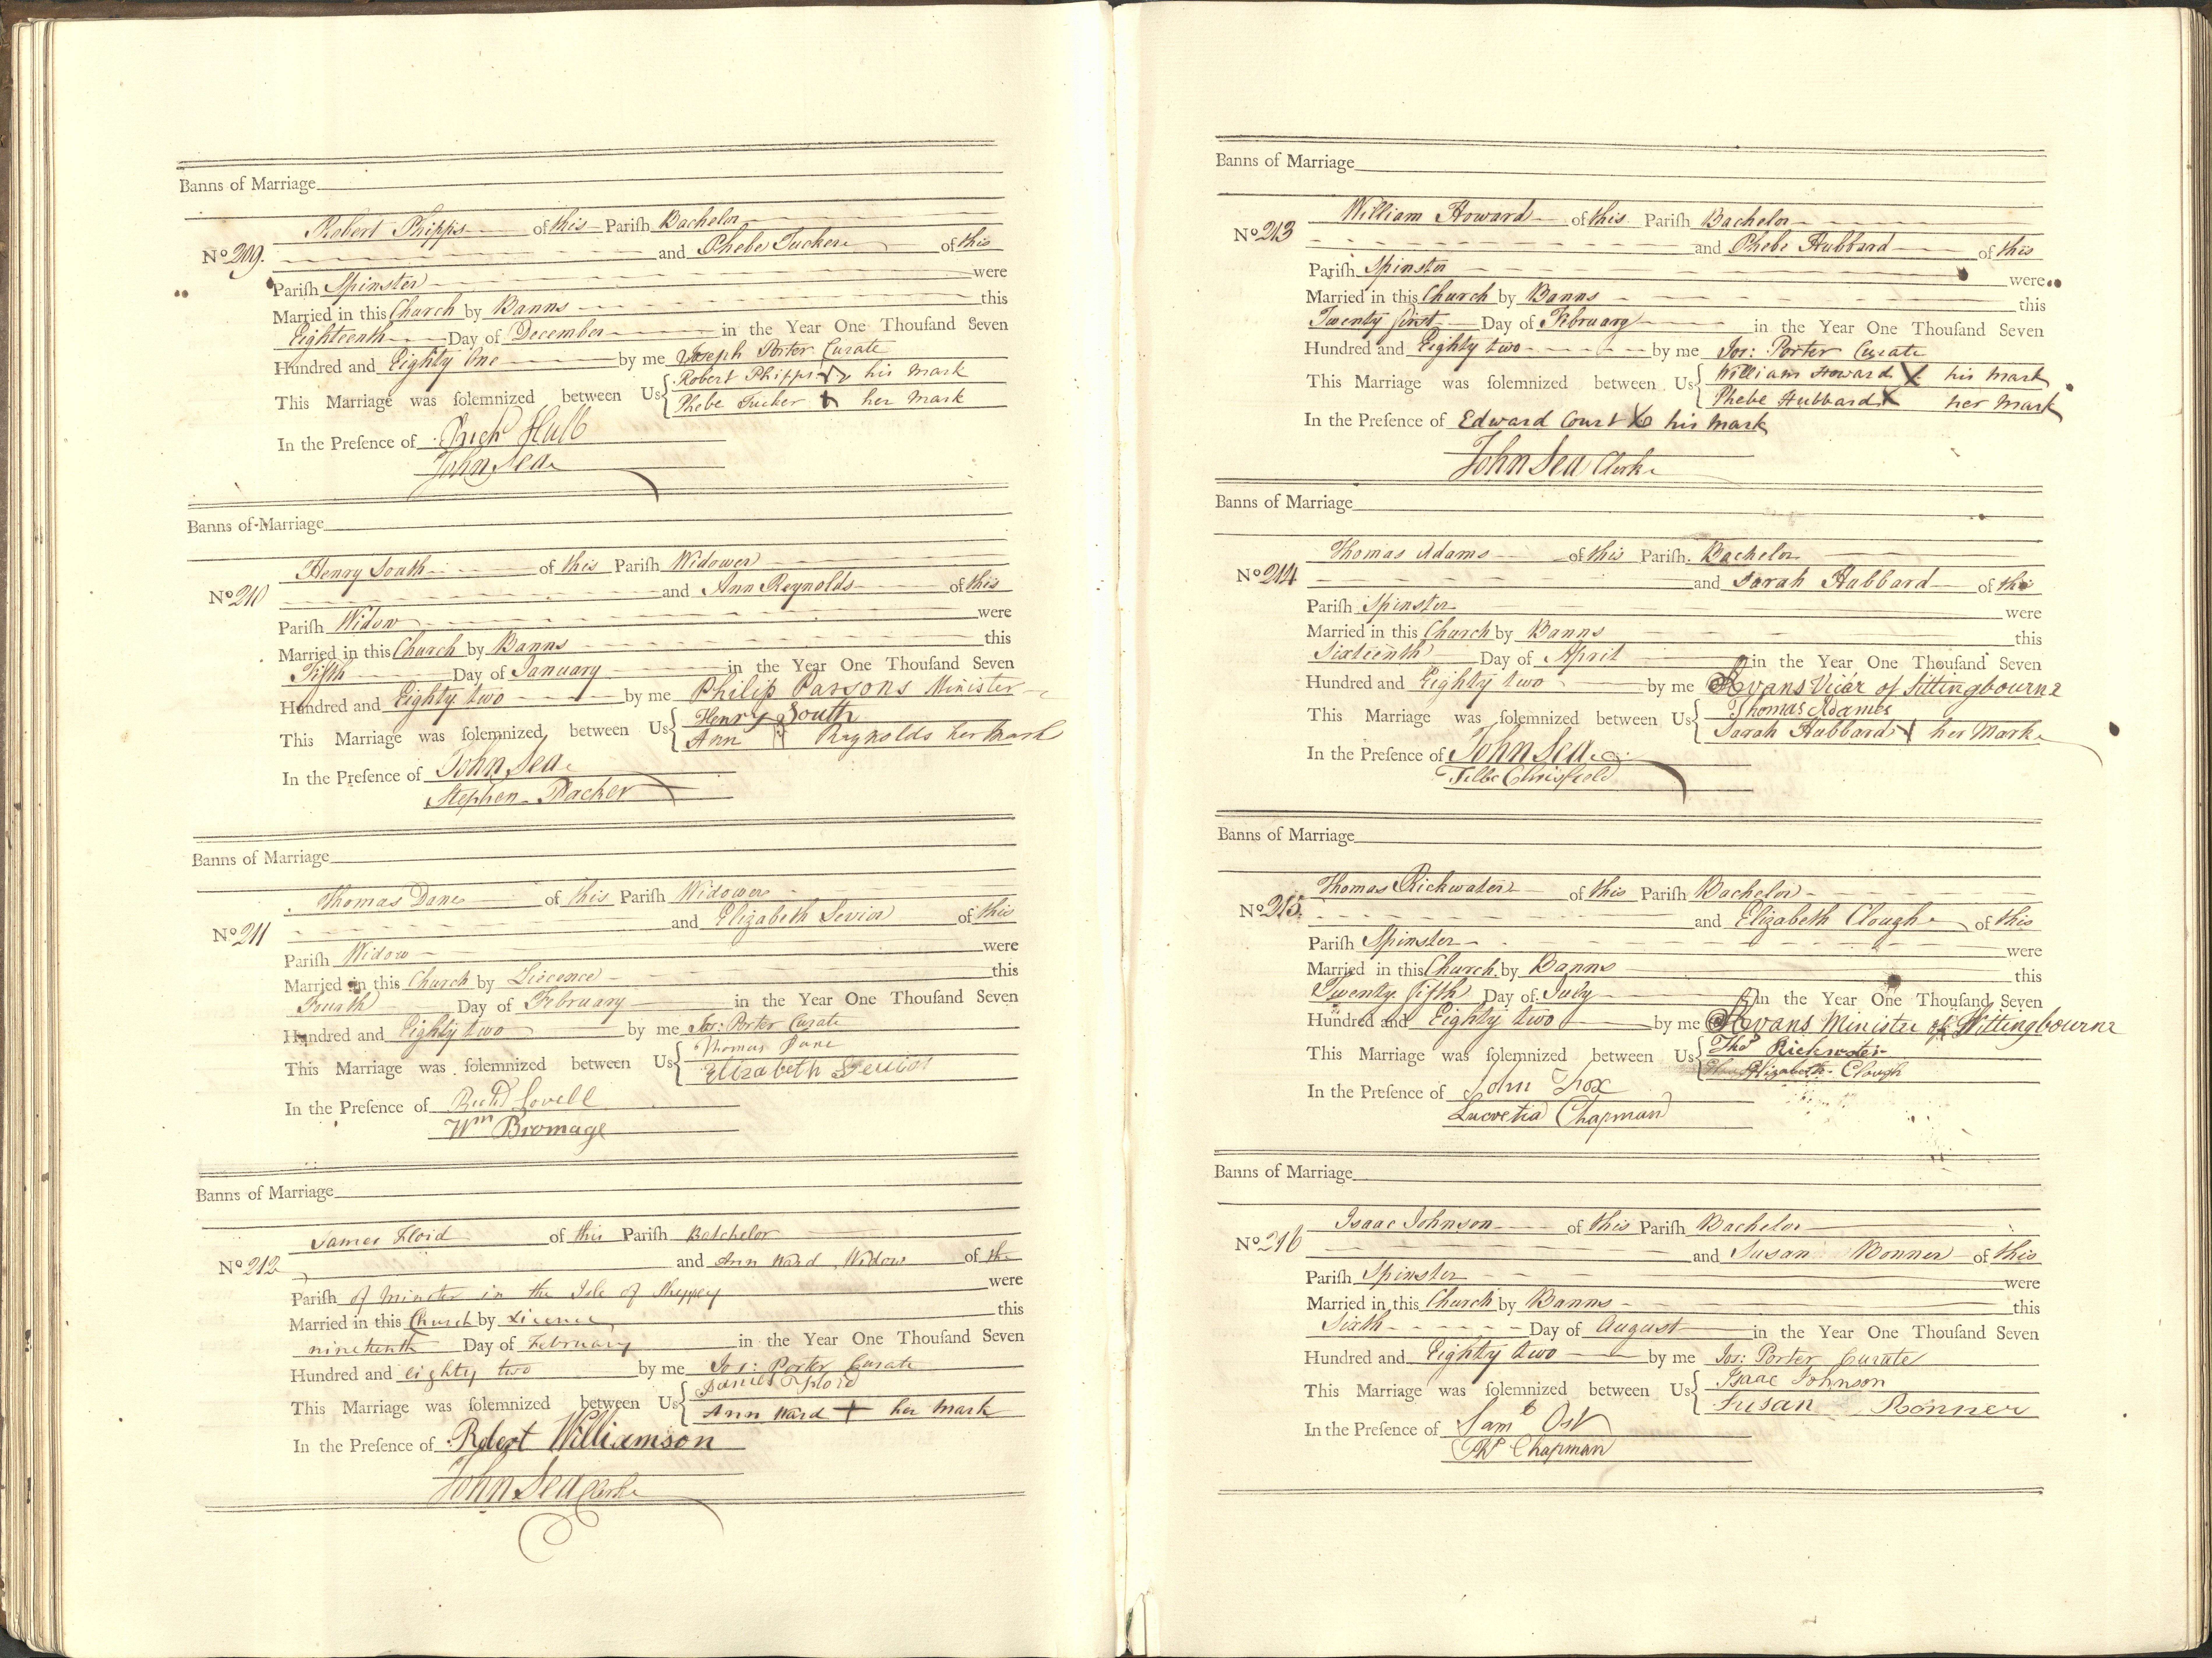 Banns of Marriage
Robert Phipps of this Parish Bachelor
No 209. and Phebe Tucker of this
Parish Spinster were
Married in this Church by Banns this
Eighteenth Day of December in the Year One Thousand Seven
Hundred and Eighty One by me Joseph Porter Curate
This Marriage was solemnized between Us Robert Phipps X his mark
Phebe Tucker + her mark
In the Presence of Hull
John Sea
Banns of Marriage
Henry South of this Parish Widower
No 210 and Ann Reynolds of this
Parish Widow were
Married in this Church by Banns this
Fifth Day of January in the Year One Thousand Seven
Hundred and Eighty two by me Philip Parsons Minister
This Marriage was solemnized between Us Henry South
Ann Reynolds her mark
In the Presence of John Sea
Stephen Thacher
Banns of Marriage
Thomas Dane of this Parish Widower
No 211 and Elizabeth Sevior of this
Parish Widow were
Married in this Church by Liecence this
Fourth Day of February in the Year One Thousand Seven
Hundred and Eighty two by me Jos: Porter Curate
This Marriage was solemnized between Us Thomas Dane
Elizabeth Sevior
In the Presence of Richd Lovell
Wm Bromage
Banns of Marriage
James Floid of this Parish Batchelor
No 212 and Ann Ward Widow of the
Parish of Minster in the Isle of Sheppey were
Married in this Church by Licence this
nineteenth Day of February in the Year One Thousand Seven
Hundred and eighty two by me Jos: Porter Curate
This Marriage was solemnized between Us James Floid
Ann Ward + her mark
In the Presence of Robert Williamson
John Sea Clerke
Banns of Marriage
William Howard of this Parish Bachelor
No 213 and Phebe Hubbard of this
Parish Spinster were
Married in this Church by Banns this
Twenty first Day of February in the Year One Thousand Seven
Hundred and Eighty two by me Jos: Porter Curate
This Marriage was solemnized between Us William Howard X his mark
Phebe Hubbard X her mark
In the Presence of Edward Court X his mark
John Sea Clerke
Banns of Marriage
Thomas Adams of this Parish Bachelor
No 214 and Sarah Hubbard of this
Parish Spinster were
Married in this Church by Banns this
Sixteenth Day of April in the Year One Thousand Seven
Hundred and Eighty two by me Evans Vicar of Sittingbourne
This Marriage was solemnized between Us Thomas Adames
Sarah Hubbard X her Mark
In the Presence of John Sea
Chrisfield
Banns of Marriage
Thomas Rickwater of this Parish Bachelor
No 215. and Elizabeth Clough of this
Parish Spinster were
Married in this Church by Banns this
Twenty fifth Day of July in the Year One Thousand Seven
Hundred and Eighty two by me Evans Minister of Sittingbourne
This Marriage was solemnized between Us Thos Rickwater
Elizabeth Clough
In the Presence of John Fox
Lucretia Chapman
Banns of Marriage
Isaac Johnson of this Parish Bachelor
No 216 and Susan Bonner of this
Parish Spinster were
Married in this Church by Banns this
Sixth Day of August in the Year One Thousand Seven
Hundred and Eighty two by me Jos: Porter Curate
This Marriage was solemnized between Us Isaac Johnson
Susan Bonner
In the Presence of Saml Ost
Chapman